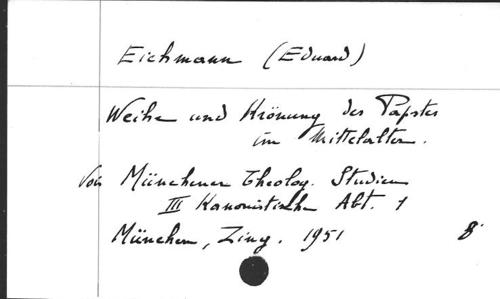 Eichmann (Eduard)
Weihe und Krönung des Papstes
im Mittelalter.
Voir Münchener Theolog. Studien
III Kanonistische Abt. 1
München, Zing. 1951 8°